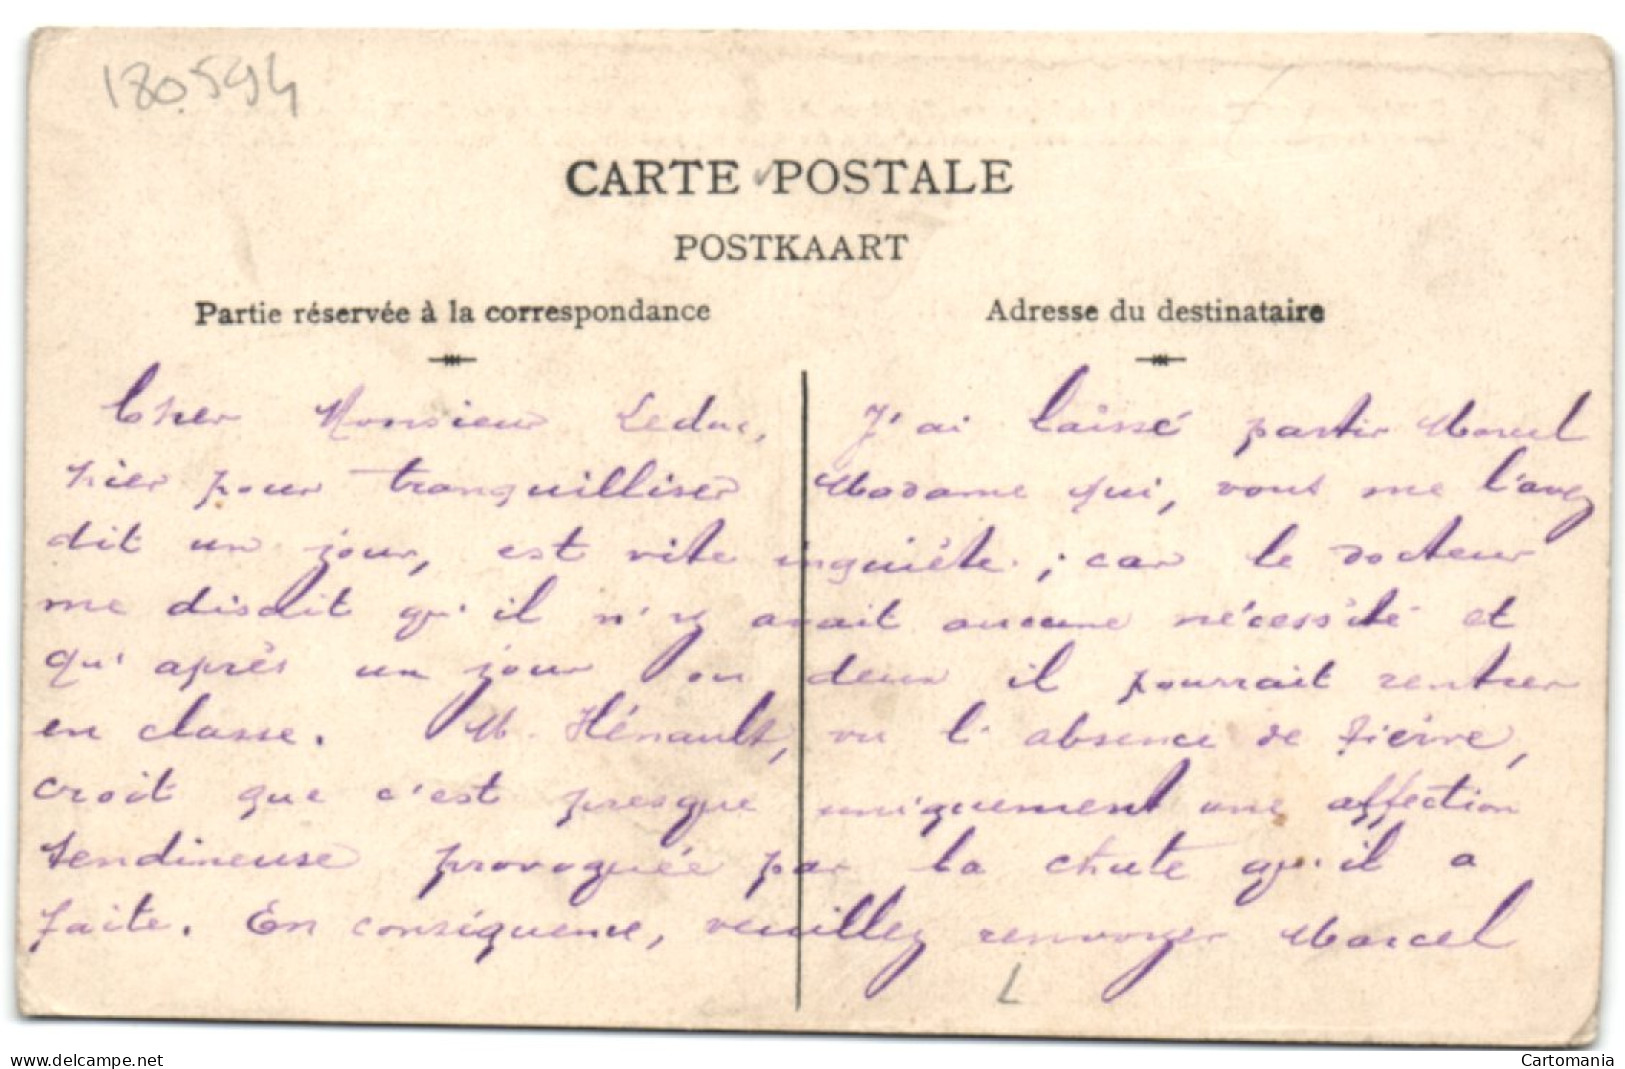 180.594
CARTE POSTALE
POSTKAART
Partie réservée à la correspondance
Adresse du destinataire
Cher Monsieur Leduc, J'ai laissé partir Marcel
hier pour tranquilliser Madame qui, vous me l'avez
dit un jour, est vite inquiète ; car le docteur
me disait qu'il n'y avait aucune nécessité et
qu'après un jour ou deux il pourrait rentrer
en classe. M. Hénault, vu l'absence de fièvre,
croit que c'est presque uniquement une affection
tendineuse provoquée par la chute qu'il a
faite. En conséquence, veuillez renvoyer Marcel
L
www.delcampe.net
Cartomania